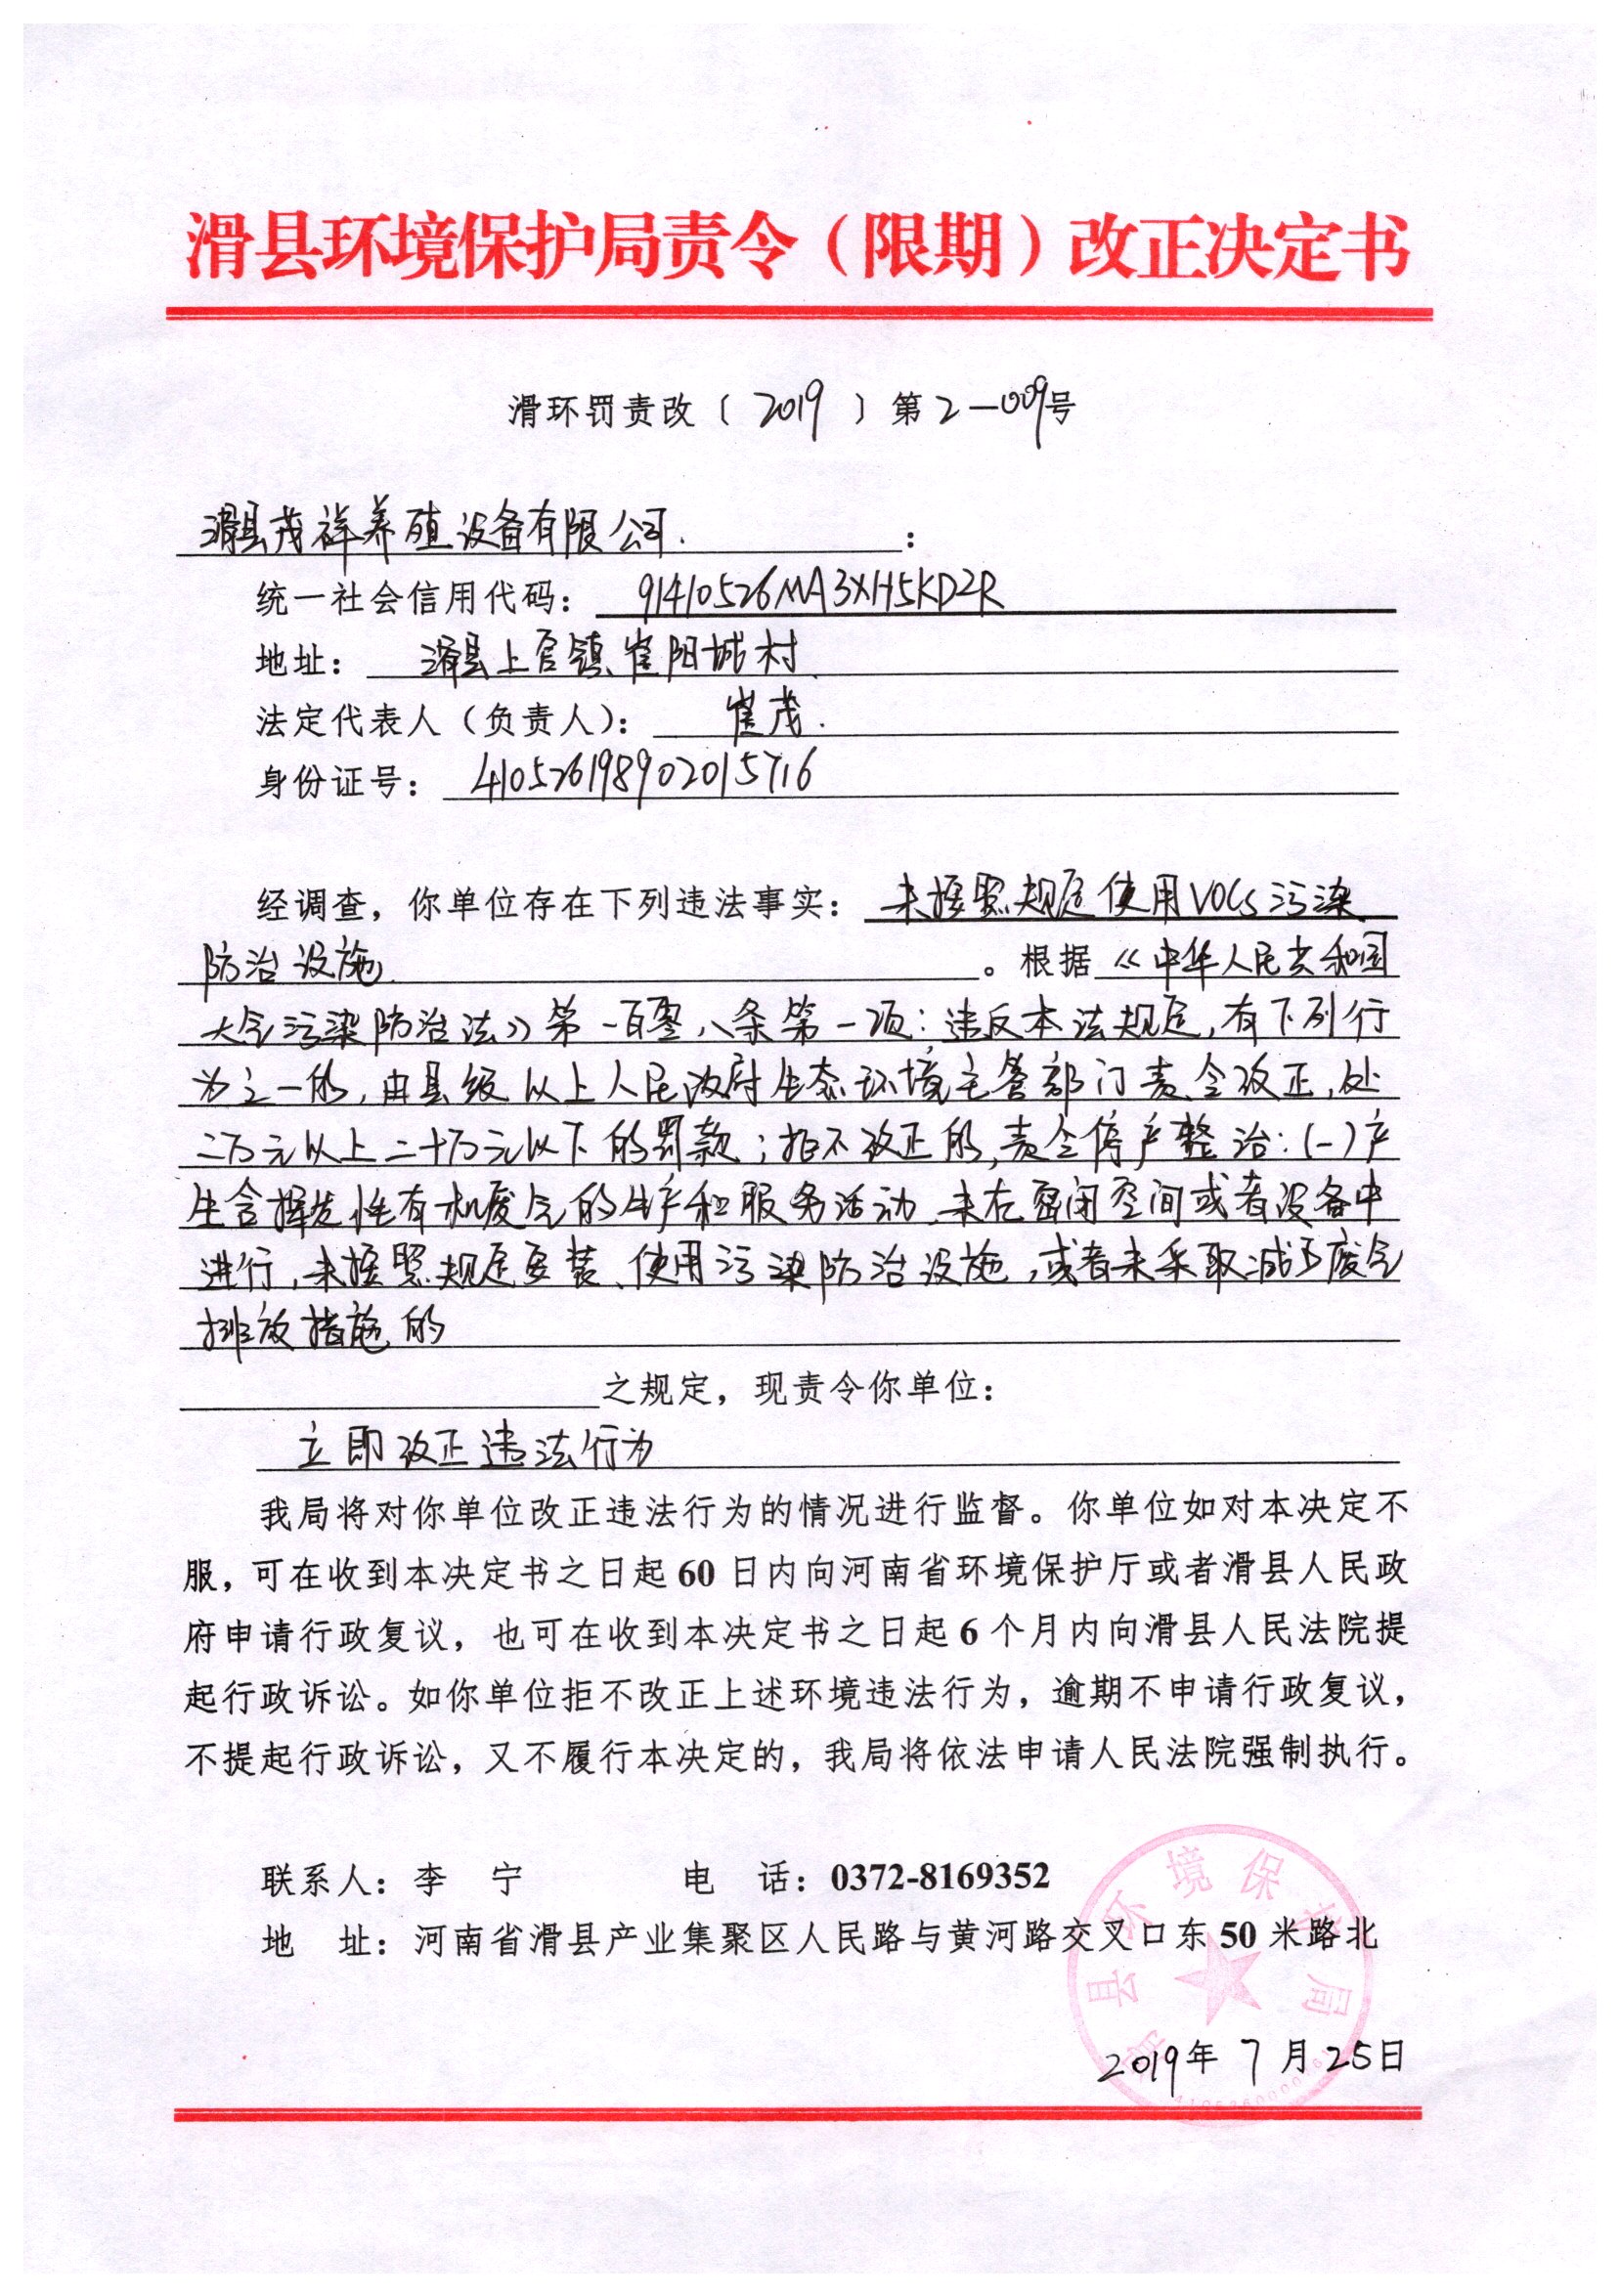 滑县环境保护局责令（限期）改正决定书
滑环罚责改〔2019〕第2-009号
滑县茂祥养殖设备有限公司.：
统一社会信用代码：91410526MA3XH5KD2R
地址：滑县上官镇崔阳城村
法定代表人（负责人）：崔茂.
身份证号：410526198902015716
经调查，你单位存在下列违法事实：未按照规定使用VOCs污染
防治设施。根据《中华人民共和国
大气污染防治法》第一百零八条第一项：违反本法规定，有下列行
为之一的，由县级以上人民政府生态环境主管部门责令改正，处
二万元以上二十万元以下的罚款；拒不改正的，责令停产整治：(一)产
生含挥发性有机废气的生产和服务活动，未在密闭空间或者设备中
进行，未按照规定安装、使用污染防治设施，或者未采取减少废气
排放措施的
之规定，现责令你单位：
立即改正违法行为
我局将对你单位改正违法行为的情况进行监督。你单位如对本决定不
服，可在收到本决定书之日起60日内向河南省环境保护厅或者滑县人民政
府申请行政复议，也可在收到本决定书之日起6个月内向滑县人民法院提
起行政诉讼。如你单位拒不改正上述环境违法行为，逾期不申请行政复议，
不提起行政诉讼，又不履行本决定的，我局将依法申请人民法院强制执行。
联系人：李 宁 电 话：0372-8169352
地 址：河南省滑县产业集聚区人民路与黄河路交叉口东50米路北
滑县环境保护局
2019年7月25日